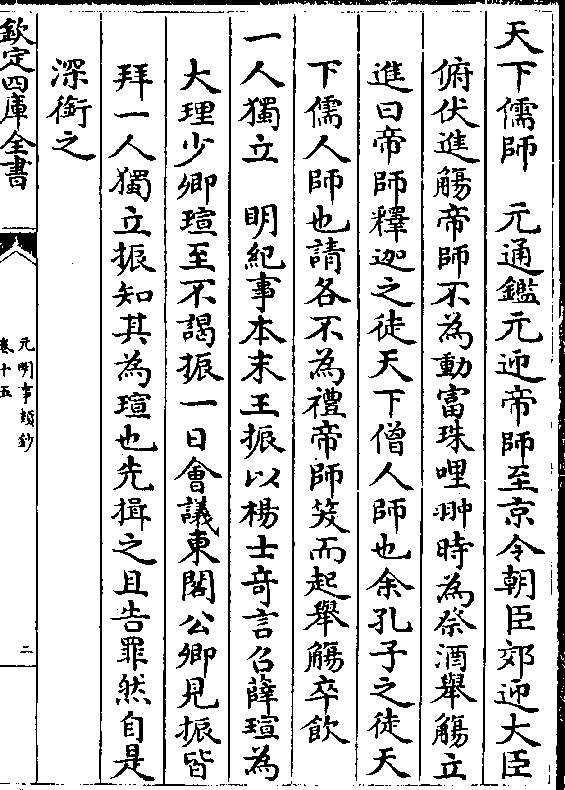 天下儒師　元通鑑元迎帝師至京令朝臣郊迎大臣
俯伏進觴帝師不為動富珠哩翀時為祭酒舉觴立
進曰帝師釋迦之徒天下僧人師也余孔子之徒天
下儒人師也請各不為禮帝師笑而起舉觴卒飲
一人獨立　明紀事本末王振以楊士奇言召薛瑄為
大理少卿瑄至不謁振一日會議東閣公卿見振皆
拜一人獨立振知其為瑄也先揖之且告罪然自是
深銜之
欽定四庫全書
元明事類鈔
卷十五
二